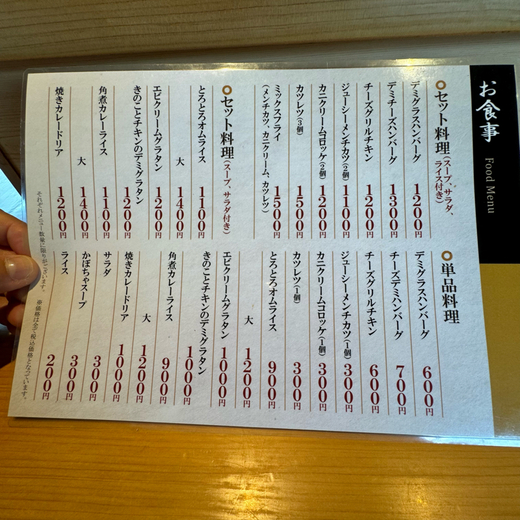 お食事
Food Menu
セット料理(スープ、サラダ、ライス付き)
デミグラスハンバーグ 1200円
デミチーズハンバーグ 1300円
チーズグリルチキン 1200円
ジューシーメンチカツ(2個) 1100円
カニクリームコロッケ(2個) 1200円
カツレツ(3個) 1500円
ミックスフライ(メンチカツ、カニクリーム、カツレツ) 1500円
セット料理(スープ、サラダ付き)
とろとろオムライス 1100円
大 1400円
エビクリームグラタン 1200円
きのことチキンのデミグラタン 1200円
角煮カレーライス 1100円
大 1400円
焼きカレードリア 1200円
単品料理
デミグラスハンバーグ 600円
チーズデミハンバーグ 700円
チーズグリルチキン 600円
ジューシーメンチカツ(1個) 300円
カニクリームコロッケ(1個) 300円
カツレツ(1個) 300円
とろとろオムライス 900円
大 1200円
エビクリームグラタン 1000円
きのことチキンのデミグラタン 1000円
角煮カレーライス 900円
大 1200円
焼きカレードリア 1000円
サラダ 300円
かぼちゃスープ 300円
ライス 200円
それぞれメニュー数量に限りがございます。 ※価格は全て税込価格となっています。